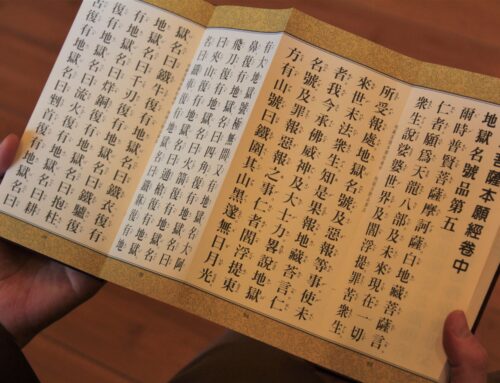 薩本願經卷中
地獄名號品第五
爾時普賢菩薩摩訶薩白地藏菩薩言
仁者願為天龍八部及未來現在一切
眾生說娑婆世界及閻浮提罪苦眾生
所受報處地獄名號及惡報等事使未
來世末法眾生知是果報地藏答言仁
者我今承佛威神及大士力畧說地獄
名號及罪報惡報之事仁者閻浮提東
方有山號曰鐵圍其山黑邃無日月光
有大地獄號極無間又有地獄名大阿
鼻復有地獄名曰四角復有地獄名曰
飛刀復有地獄名曰火箭復有地獄名
曰夾山復有地獄名曰通槍復有地獄
名曰鐵車復有地獄名曰鐵
獄名曰鐵牛復有地獄名曰鐵衣復有
地獄名曰千刃復有地獄名曰鐵驢
復有地獄名曰烊銅復有地獄名曰抱柱
復有地獄名曰流火復有地獄名曰耕
舌復有地獄名曰剉首復有地獄名曰